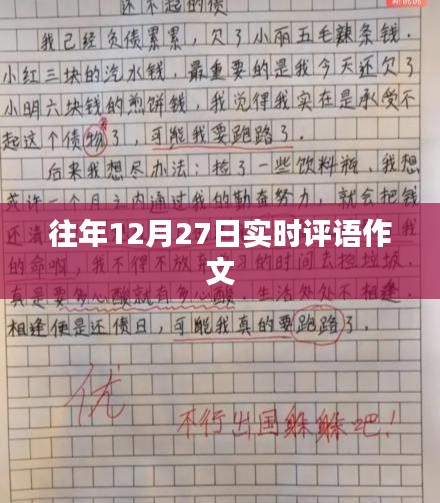 还不起的债
我已经负债累累，欠了小丽五毛辣条钱，
小红三块的汽水钱，最重要的是我今天还欠了
小明六块钱的煎饼钱，我觉得我实在是承受不
起这个债物了，可能我要跑路了。
后来我想尽办法：捡了一些饮料瓶，我想
或许一个月之内通过我的勤奋努力，就会把钱
还清
往年12月27日实时评语作
文
的命啊，我不得不放弃学习的时间去捡垃圾，
真是要多心酸就有多心酸，生活处处不相逢，
相逢便是还债日，可能我真的要跑路了。
优
不行出国躲躲吧！